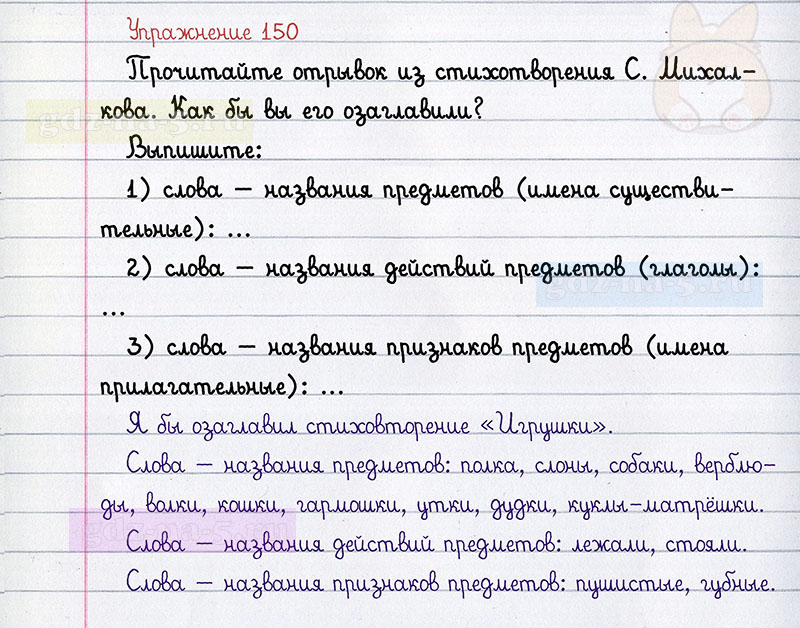 Упражнение 150
Прочитайте отрывок из стихотворения С. Михал-
кова. Как бы вы его озаглавили?
gdz-na-5.ru
Выпишите:
1) слова – названия предметов (имена существи-
тельные): ...
2) слова – названия действий предметов (глаголы):
gdz-na-5.ru
...
3) слова – названия признаков предметов (имена
прилагательные): ...
Я бы озаглавил стиховторение «Игрушки».
Слова – названия предметов: полка, слоны, собаки, верблю-
ды, волки, кошки, гармошки, утки, дудки, куклы-матрёшки.
gdz-na-5.ru
Слова – названия действий предметов: лежали, стояли.
Слова – названия признаков предметов: пушистые, губные.